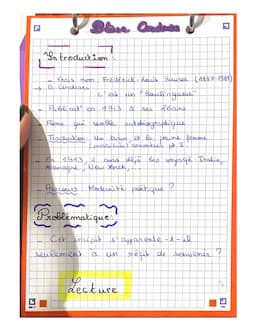 Blaise Cendrars
Introduction :
- Vrais nom Frédérick-Louis Sauser (1887-1961)
→ B. Cendrars
c'est un "Bourlingueur"
- Publicat° en 1913 à ses 26ans
- Poème qui semble autobiographique
- Traduction Un blanc et la jeune femme
(prostituée) rencontrés pt I.
- En 1913, il avait déjà bcp voyagé : Italie,
Allemagne, New York,...
- Parcours Modernité poétique ?
Problématique :
- Cet incipit s'apparente-t-il
seulement à un récit de souvenir ?
Lecture